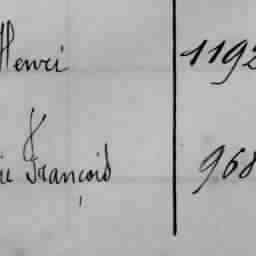 Henri 1192
&
ie François 968